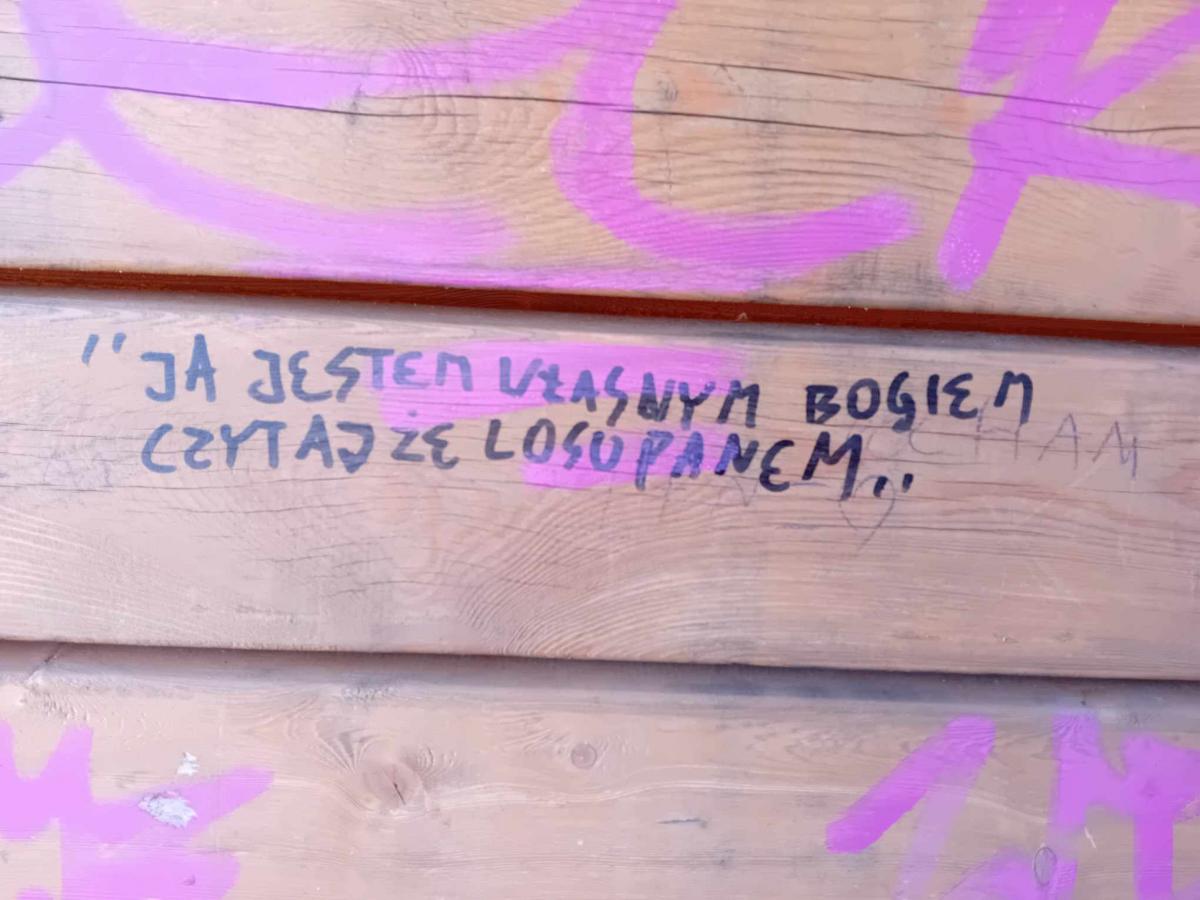 "JA JESTEM WŁASNYM BOGIEM
CZYTAJ ŻE LOSU PANEM„